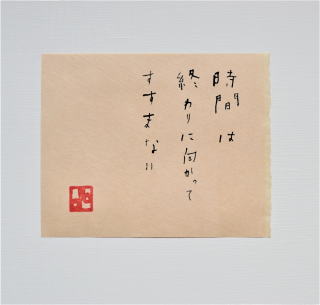 時間は
終わりに向かって
すすまない